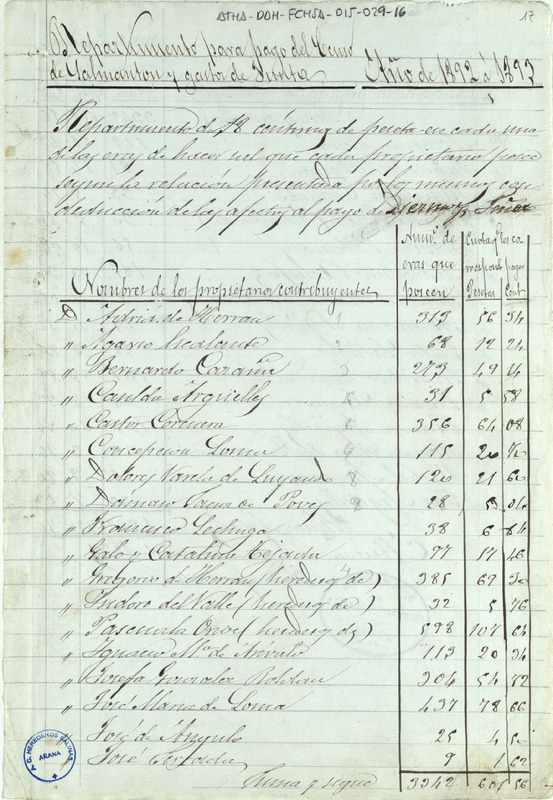 ATHA-DDH-FCHSA-015-029-16
17
Repartimiento para pago del Censo
de Salmanton y gastos de
Año de 1892 á 1893
Repartimiento de 18 céntimos de peseta en cada una
de las eras de hacer sal que cada propietario posee
segun la relacion presentada por los mismos con
deducción de las afectas al pago de
Num.º de eras que poseen
Cuotas q.e les corresponde pagar
Pesetas Cent.
Nombres de los propietarios contribuyentes
D. de Herran 1 313 56 34
" 2 68 12 24
" Bernardo 3 273 49 14
" Casilda Arguelles 31 5 58
" Castor Corcuera 356 64 08
" Concepcion Loma 115 20 70
" Dolores Varela de 120 21 60
" Dámaso Saenz de Poves 28 5 04
" Francisco Lechuga 38 6 84
" Galo y Catalina Tejada 97 17 46
" Gregorio de Herran (hered.os de) 385 69 30
" Isidoro del Valle (hered.os de) 32 5 76
" Pascuala (hered.os de) 598 107 64
" Ignacio M.a de Arevalo 113 20 34
" Josefa Gonzalez Roldan 304 54 72
" José Maria de Loma 437 78 66
" José de Angulo 25 4 50
" José 9 1 62
Suma y sigue 3342 601 56
T. G. HEREDEROS SALINAS
AÑANA